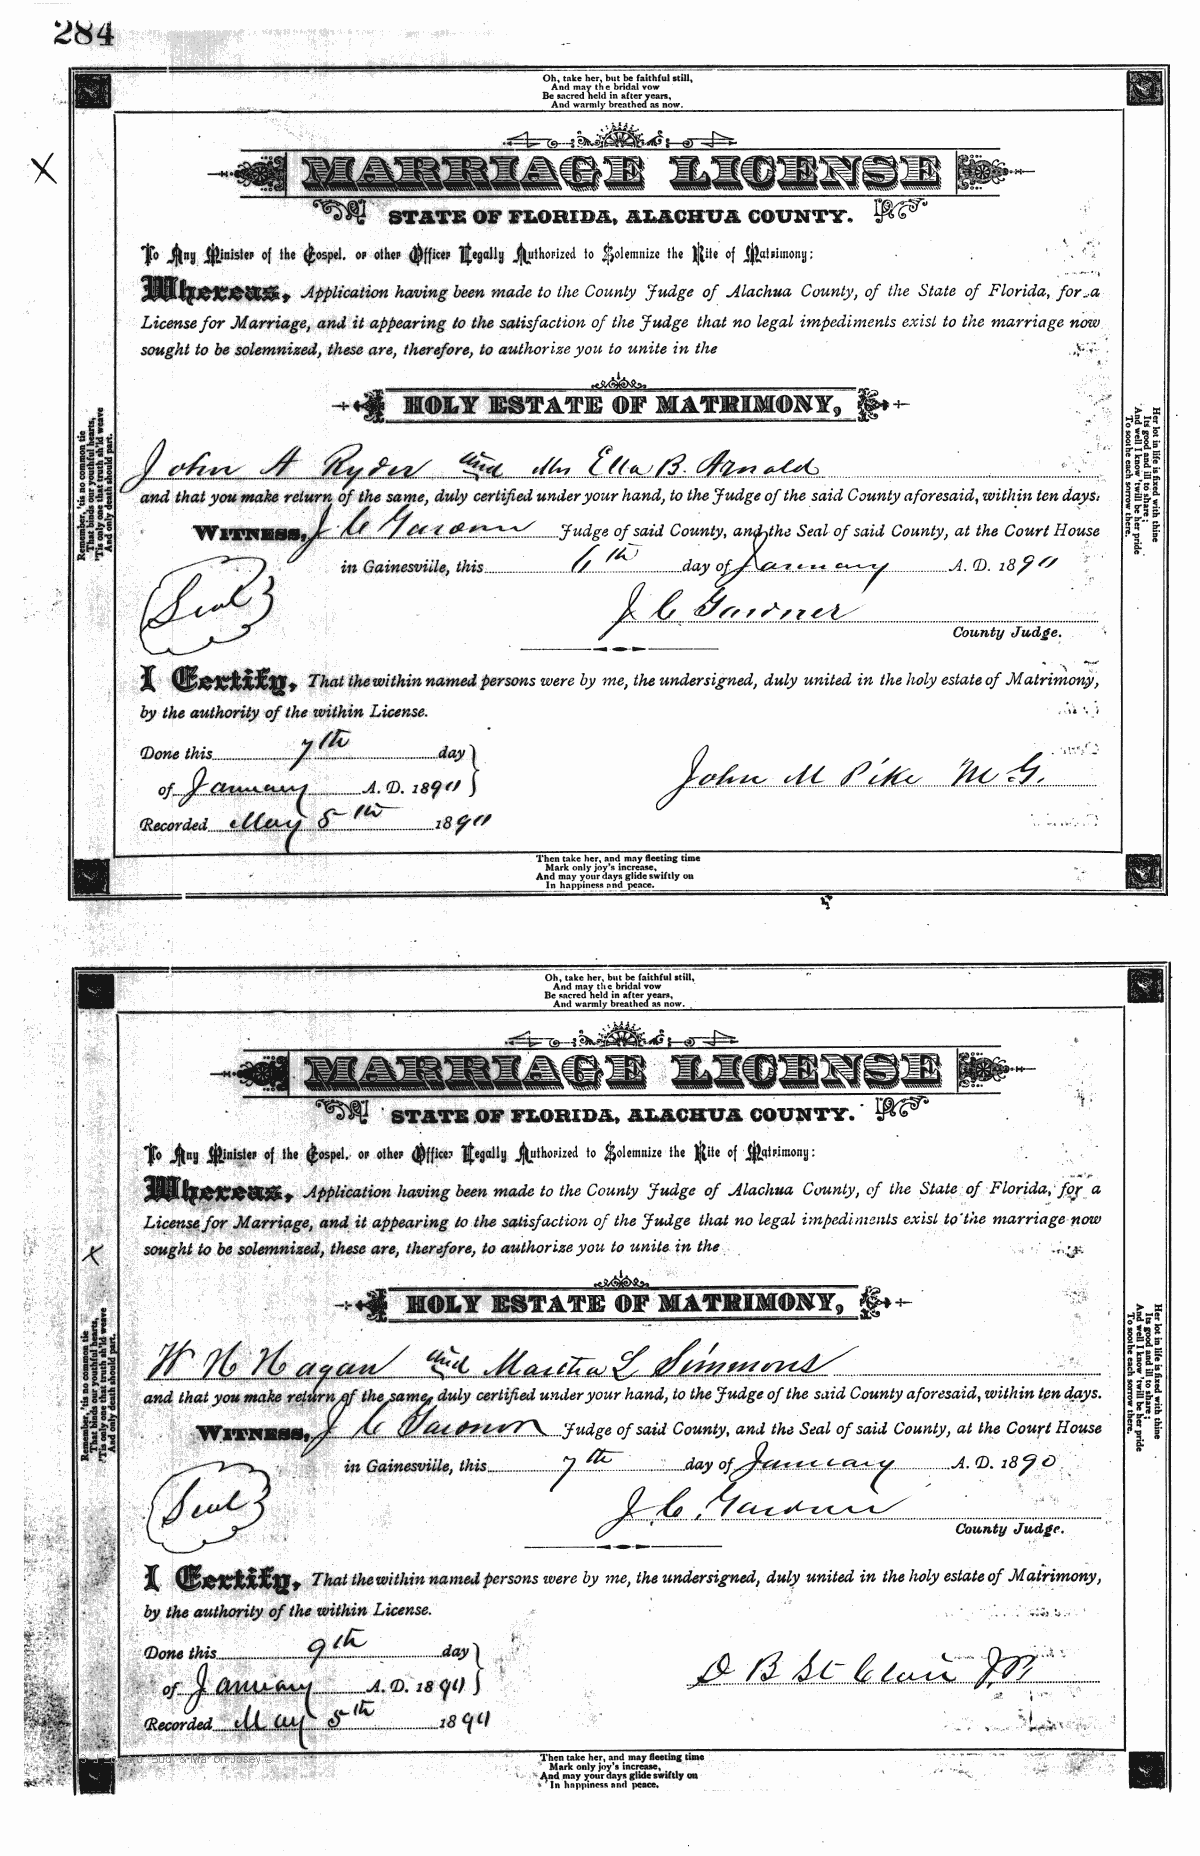 284
Oh, take her, but be faithful still,
And may the bridal vow
Be sacred held in after years,
And warmly breathed as now.
X
MARRIAGE LICENSE
STATE OF FLORIDA, ALACHUA COUNTY.
To Any Minister of the Gospel, or other Officer Legally Authorized to Solemnize the Rite of Matrimony:
Whereas, Application having been made to the County Judge of Alachua County, of the State of Florida, for a
License for Marriage, and it appearing to the satisfaction of the Judge that no legal impediments exist to the marriage now
sought to be solemnized, these are, therefore, to authorize you to unite in the
HOLY ESTATE OF MATRIMONY,
John A Ryder and Mrs Ella B. Arnold
and that you make return of the same, duly certified under your hand, to the Judge of the said County aforesaid, within ten days.
WITNESS, J C Gardner Judge of said County, and the Seal of said County, at the Court House
in Gainesville, this 6th day of January A. D. 1890
Seal
J C Gardner
County Judge.
I Certify, That the within named persons were by me, the undersigned, duly united in the holy estate of Matrimony,
by the authority of the within License.
Done this 7th day
of January A. D. 1890
John M Pike M G.
Recorded May 5th 1890
Remember, 'tis no common tie
That binds our youthful hearts,
'Tis only one that truth sh'ld weave
And only death should part.
Her lot in life is fixed with thine
Its good and ill to share;
And well I know 'twill be her pride
To soothe each sorrow there.
Then take her, and may fleeting time
Mark only joy's increase,
And may your days glide swiftly on
In happiness and peace.
Oh, take her, but be faithful still,
And may the bridal vow
Be sacred held in after years,
And warmly breathed as now.
MARRIAGE LICENSE
STATE OF FLORIDA, ALACHUA COUNTY.
To Any Minister of the Gospel, or other Officer Legally Authorized to Solemnize the Rite of Matrimony:
Whereas, Application having been made to the County Judge of Alachua County, of the State of Florida, for a
License for Marriage, and it appearing to the satisfaction of the Judge that no legal impediments exist to the marriage now
sought to be solemnized, these are, therefore, to authorize you to unite in the
X
HOLY ESTATE OF MATRIMONY,
W N Hagan and Martha L Simmons
and that you make return of the same, duly certified under your hand, to the Judge of the said County aforesaid, within ten days.
WITNESS, J C Gardner Judge of said County, and the Seal of said County, at the Court House
in Gainesville, this 7th day of January A. D. 1890
Seal
J. C. Gardner
County Judge.
I Certify, That the within named persons were by me, the undersigned, duly united in the holy estate of Matrimony,
by the authority of the within License.
Done this 9th day
of January A. D. 1890
D B St Clair J.P.
Recorded May 5th 1890
Remember, 'tis no common tie
That binds our youthful hearts,
'Tis only one that truth sh'ld weave
And only death should part.
Her lot in life is fixed with thine
Its good and ill to share;
And well I know 'twill be her pride
To soothe each sorrow there.
Then take her, and may fleeting time
Mark only joy's increase,
And may your days glide swiftly on
In happiness and peace.